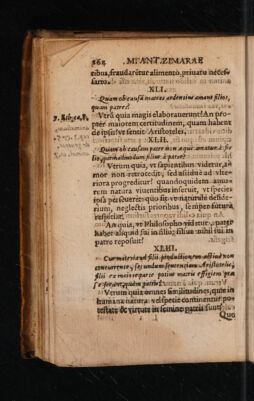 262 M. ANT. ZIMARAE
tibus, fraudarētur alimento, priuatu neces-
sario.
XLI.
Quam ob causā matres ardentius amant filios,
quam patres?
Vt rō quia magis elaborauerunt? An pro-
pter maiorem certitudinem, quam habent
de ipsis? vt sensit Aristoteles.
XLII.
Quam ob causam pater non aquè amatur à fi-
lio, quemadmodum filius à patre?
Verum quia, vt sapientibus videtur, a-
mor non retrocedit, sed assiduè ad vlte-
riora progreditur? quandoquidem amo-
rem natura viuentibus inseruit, vt species
ipsa perseueret: quo fit vt naturale deside-
rium, neglectis prioribus, semper futura
respiciat.
An quia, vt Philosopho videtur, pater
habet aliquid sui in filio; filius nihil sui in
patre reposuit?
XLIII.
Cur materia ad filii productionem actiuè non
concurrente, secundum sententiam Aristotelis,
filii ex maiore parte potius matris effigiem præ
se ferant, quàm patris?
Verum quia omnes similitudines, quæ in
humana natura vel specie continentur po-
testate & virtute in semine patris sunt?
Quo